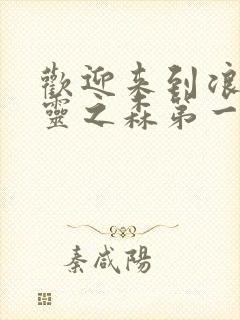 歡迎来到浪
靈之森第一
秦咸陽